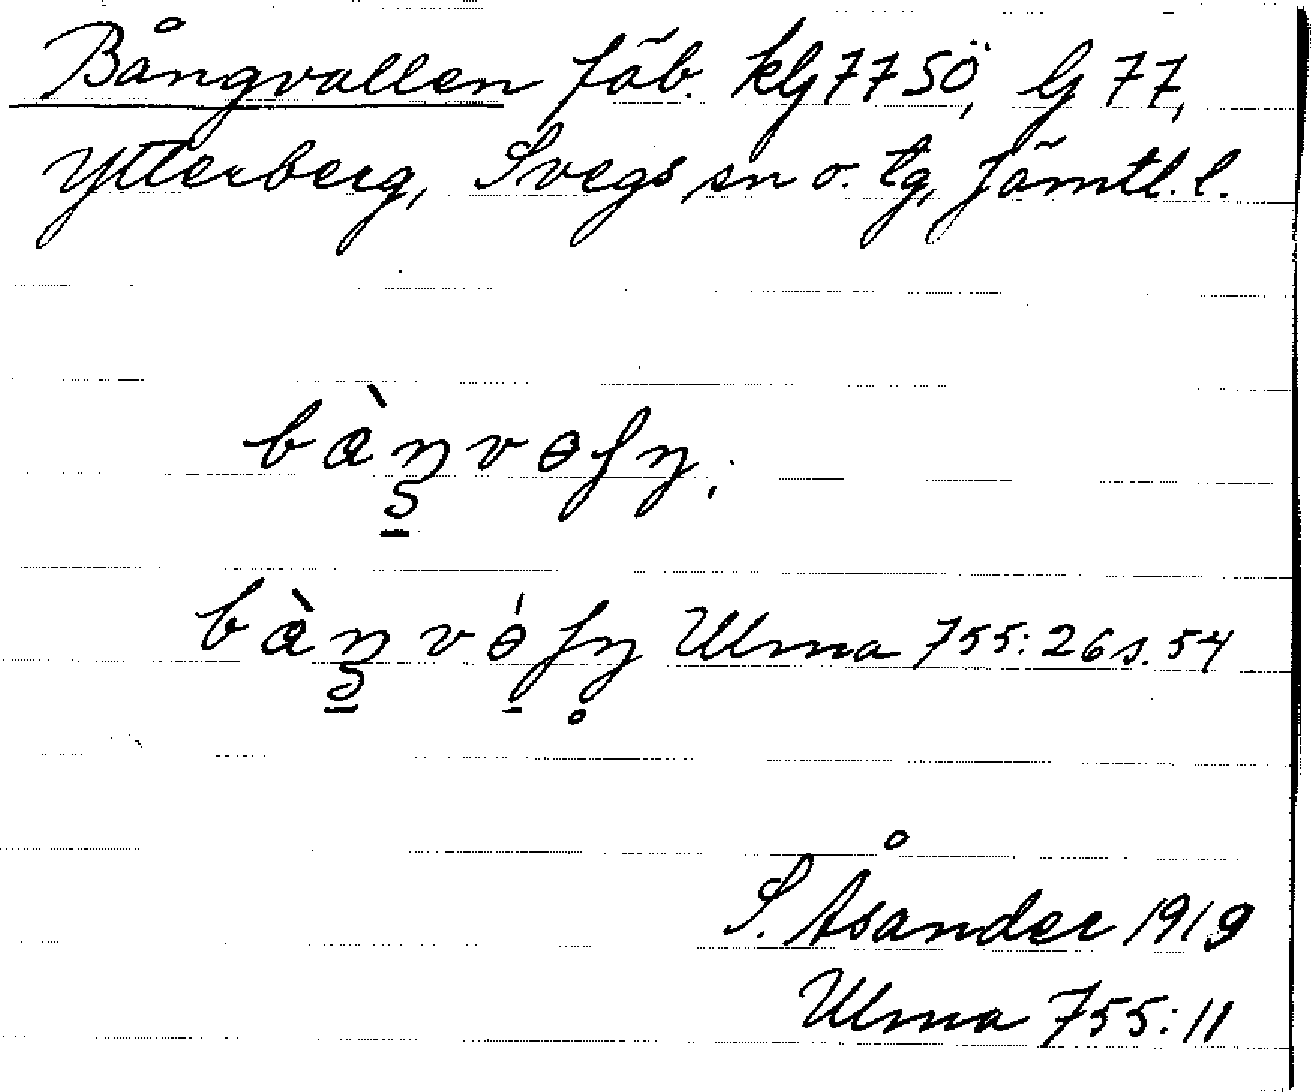 Bångvallen fäb. klg 77 SÖ, lg 77,
Ytterberg, Svegs sn o. tg, Jämtl. l.
Ulma 755:26 s. 54
S. Åsander 1919
Ulma 755:11